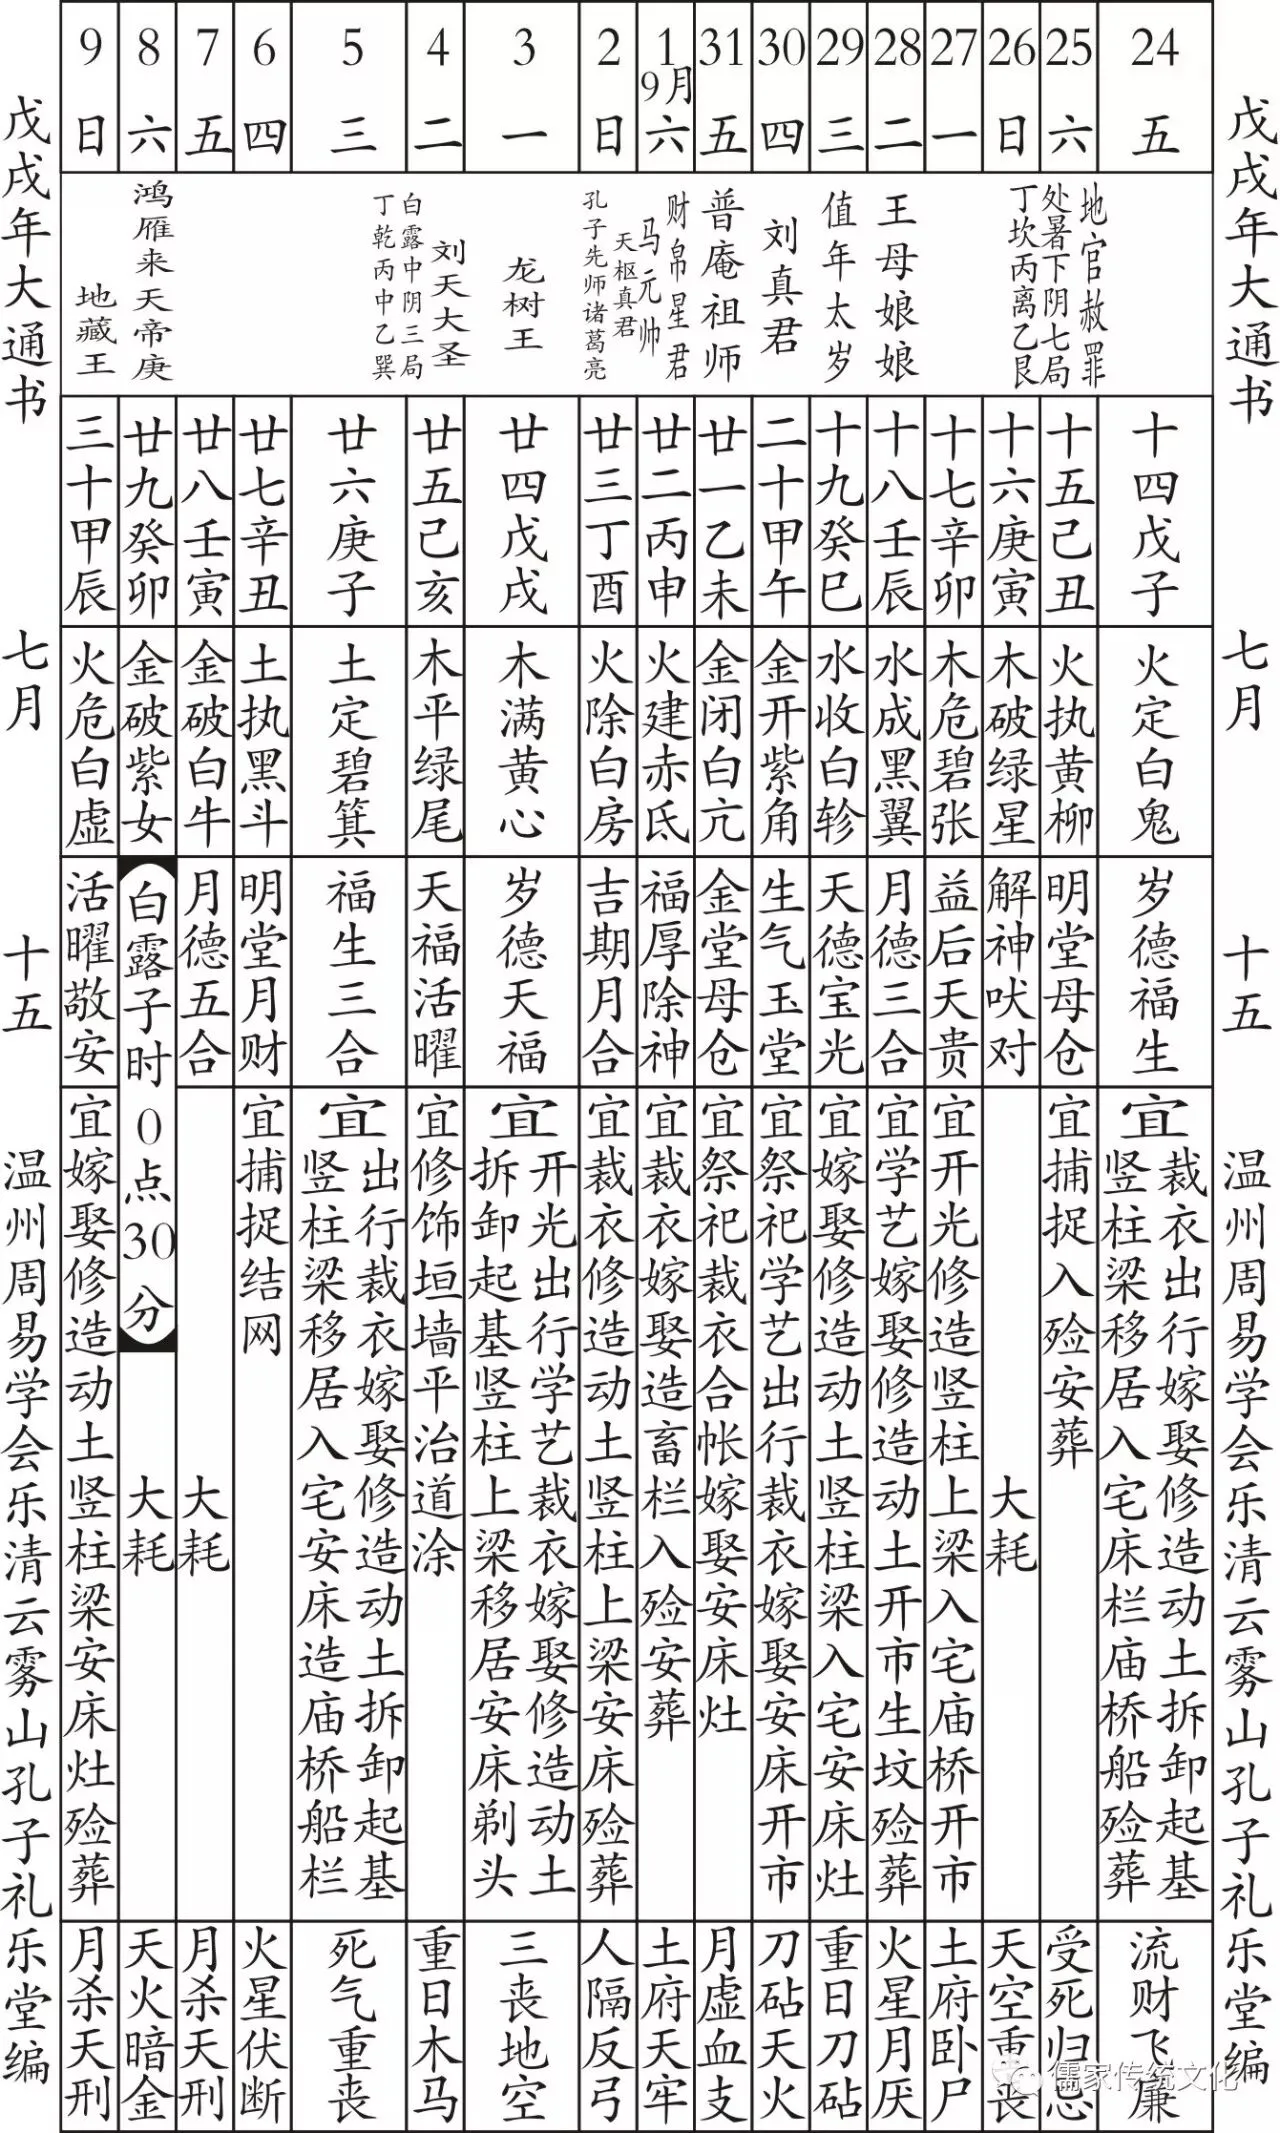 戊戌年大通书
七月
十五
温州周易学会乐清云雾山孔子礼乐堂编
24
五
十四戊子
火定白鬼
岁德福生
宜
裁衣出行嫁娶修造动土拆卸起基
竖柱梁移居入宅床栏庙桥船殓葬
流财飞廉
25
六
地官赦罪
处暑下阴七局
丁坎丙离乙艮
十五己丑
火执黄柳
明堂母仓
宜捕捉入殓安葬
受死归忌
26
日
十六庚寅
木破绿星
解神吠对
大耗
天空重丧
27
一
十七辛卯
木危碧张
益后天贵
宜开光修造竖柱上梁入宅庙桥开市
土府卧尸
28
二
王母娘娘
十八壬辰
水成黑翼
月德三合
宜学艺嫁娶修造动土开市生坟殓葬
火星月厌
29
三
值年太岁
十九癸巳
水收白轸
天德宝光
宜嫁娶修造动土竖柱梁入宅安床灶
重日刀砧
30
四
刘真君
二十甲午
金开紫角
生气玉堂
宜祭祀学艺出行裁衣嫁娶安床开市
刀砧天火
31
五
普庵祖师
廿一乙未
金闭白亢
金堂母仓
宜祭祀裁衣合帐嫁娶安床灶
月虚血支
1
9月
六
财帛星君
马元帅
廿二丙申
火建赤氐
福厚除神
宜裁衣嫁娶造畜栏入殓安葬
土府天牢
2
日
天枢真君
孔子先师诸葛亮
廿三丁酉
火除白房
吉期月合
宜裁衣修造动土竖柱上梁安床殓葬
人隔反弓
3
一
龙树王
廿四戊戌
木满黄心
岁德天福
宜
开光出行学艺裁衣嫁娶修造动土
拆卸起基竖柱上梁移居安床剃头
三丧地空
4
二
刘天大圣
廿五己亥
木平绿尾
天福活曜
宜修饰垣墙平治道涂
重日木马
5
三
白露中阴三局
丁乾丙中乙巽
廿六庚子
土定碧箕
福生三合
宜
出行裁衣嫁娶修造动土拆卸起基
竖柱梁移居入宅安床造庙桥船栏
死气重丧
6
四
廿七辛丑
土执黑斗
明堂月财
宜捕捉结网
火星伏断
7
五
廿八壬寅
金破白牛
月德五合
大耗
月杀天刑
8
六
鸿雁来天帝庚
廿九癸卯
金破紫女
白露子时0点30分
大耗
天火暗金
9
日
地藏王
三十甲辰
火危白虚
活曜敬安
宜嫁娶修造动土竖柱梁安床灶殓葬
月杀天刑
戊戌年大通书
七月
十五
温州周易学会乐清云雾山孔子礼乐堂编
儒家传统文化